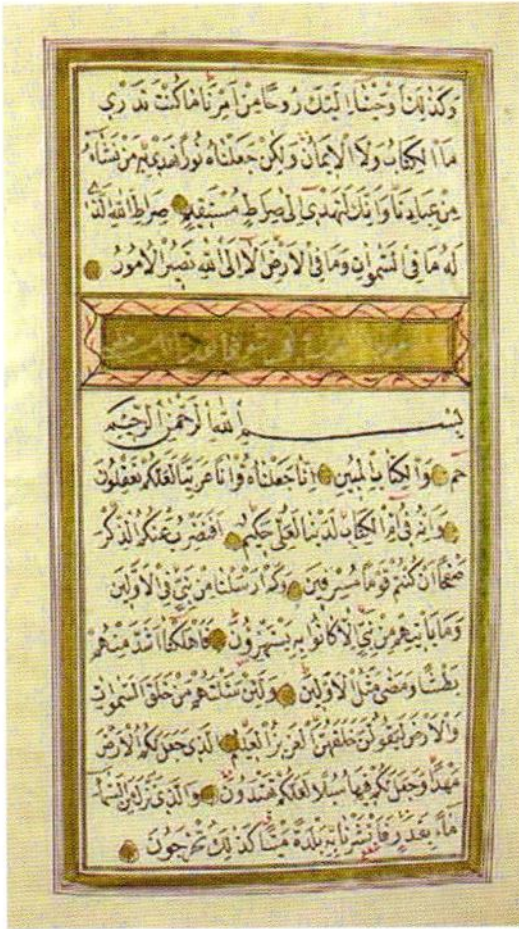 وَكَذٰلِكَ اَوْحَيْنَا اِلَيْكَ رُوحًا مِنْ اَمْرِنَا مَا كُنْتَ تَدْرِي
مَا الْكِتَابُ وَلَا الْاِيمَانُ وَلٰكِنْ جَعَلْنَاهُ نُورًا نَهْدِي بِهِ مَنْ نَشَاءُ
مِنْ عِبَادِنَا وَاِنَّكَ لَتَهْدِي اِلٰى صِرَاطٍ مُسْتَقِيمٍ صِرَاطِ اللّٰهِ الَّذِي
لَهُ مَا فِي السَّمٰوَاتِ وَمَا فِي الْاَرْضِ اَلَا اِلَى اللّٰهِ تَصِيرُ الْاُمُورُ
بِسْمِ اللّٰهِ الرَّحْمٰنِ الرَّحِيمِ
حٰمٓ وَالْكِتَابِ الْمُبِينِ اِنَّا جَعَلْنَاهُ قُرْاٰنًا عَرَبِيًّا لَعَلَّكُمْ تَعْقِلُونَ
وَاِنَّهُ فِي اُمِّ الْكِتَابِ لَدَيْنَا لَعَلِيٌّ حَكِيمٌ اَفَنَضْرِبُ عَنْكُمُ الذِّكْرَ
صَفْحًا اَنْ كُنْتُمْ قَوْمًا مُسْرِفِينَ وَكَمْ اَرْسَلْنَا مِنْ نَبِيٍّ فِي الْاَوَّلِينَ
وَمَا يَاْتِيهِمْ مِنْ نَبِيٍّ اِلَّا كَانُوا بِهِ يَسْتَهْزِؤُنَ فَاَهْلَكْنَا اَشَدَّ مِنْهُمْ
بَطْشًا وَمَضٰى مَثَلُ الْاَوَّلِينَ وَلَئِنْ سَئَلْتَهُمْ مَنْ خَلَقَ السَّمٰوَاتِ
وَالْاَرْضَ لَيَقُولُنَّ خَلَقَهُنَّ الْعَزِيزُ الْعَلِيمُ اَلَّذِي جَعَلَ لَكُمُ الْاَرْضَ
مَهْدًا وَجَعَلَ لَكُمْ فِيهَا سُبُلًا لَعَلَّكُمْ تَهْتَدُونَ وَالَّذِي نَزَّلَ مِنَ السَّمَاءِ
مَاءً بِقَدَرٍ فَاَنْشَرْنَا بِهِ بَلْدَةً مَيْتًا كَذٰلِكَ تُخْرَجُونَ